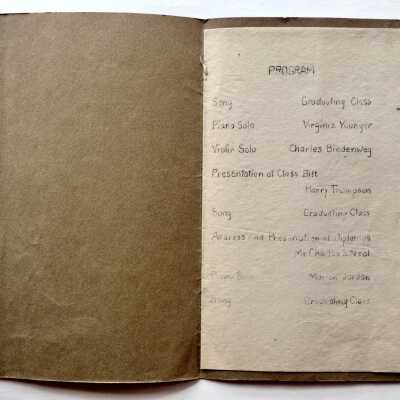 PROGRAM
Song Graduating Class
Piano Solo Virginia Younger
Violin Solo Charles Bredenweg
Presentation of Class Gift
Harry Thompson
Song Graduating Class
Address and Presentation of Diplomas
Mr. Charles
Piano Marion Jordan
Song Graduating Class